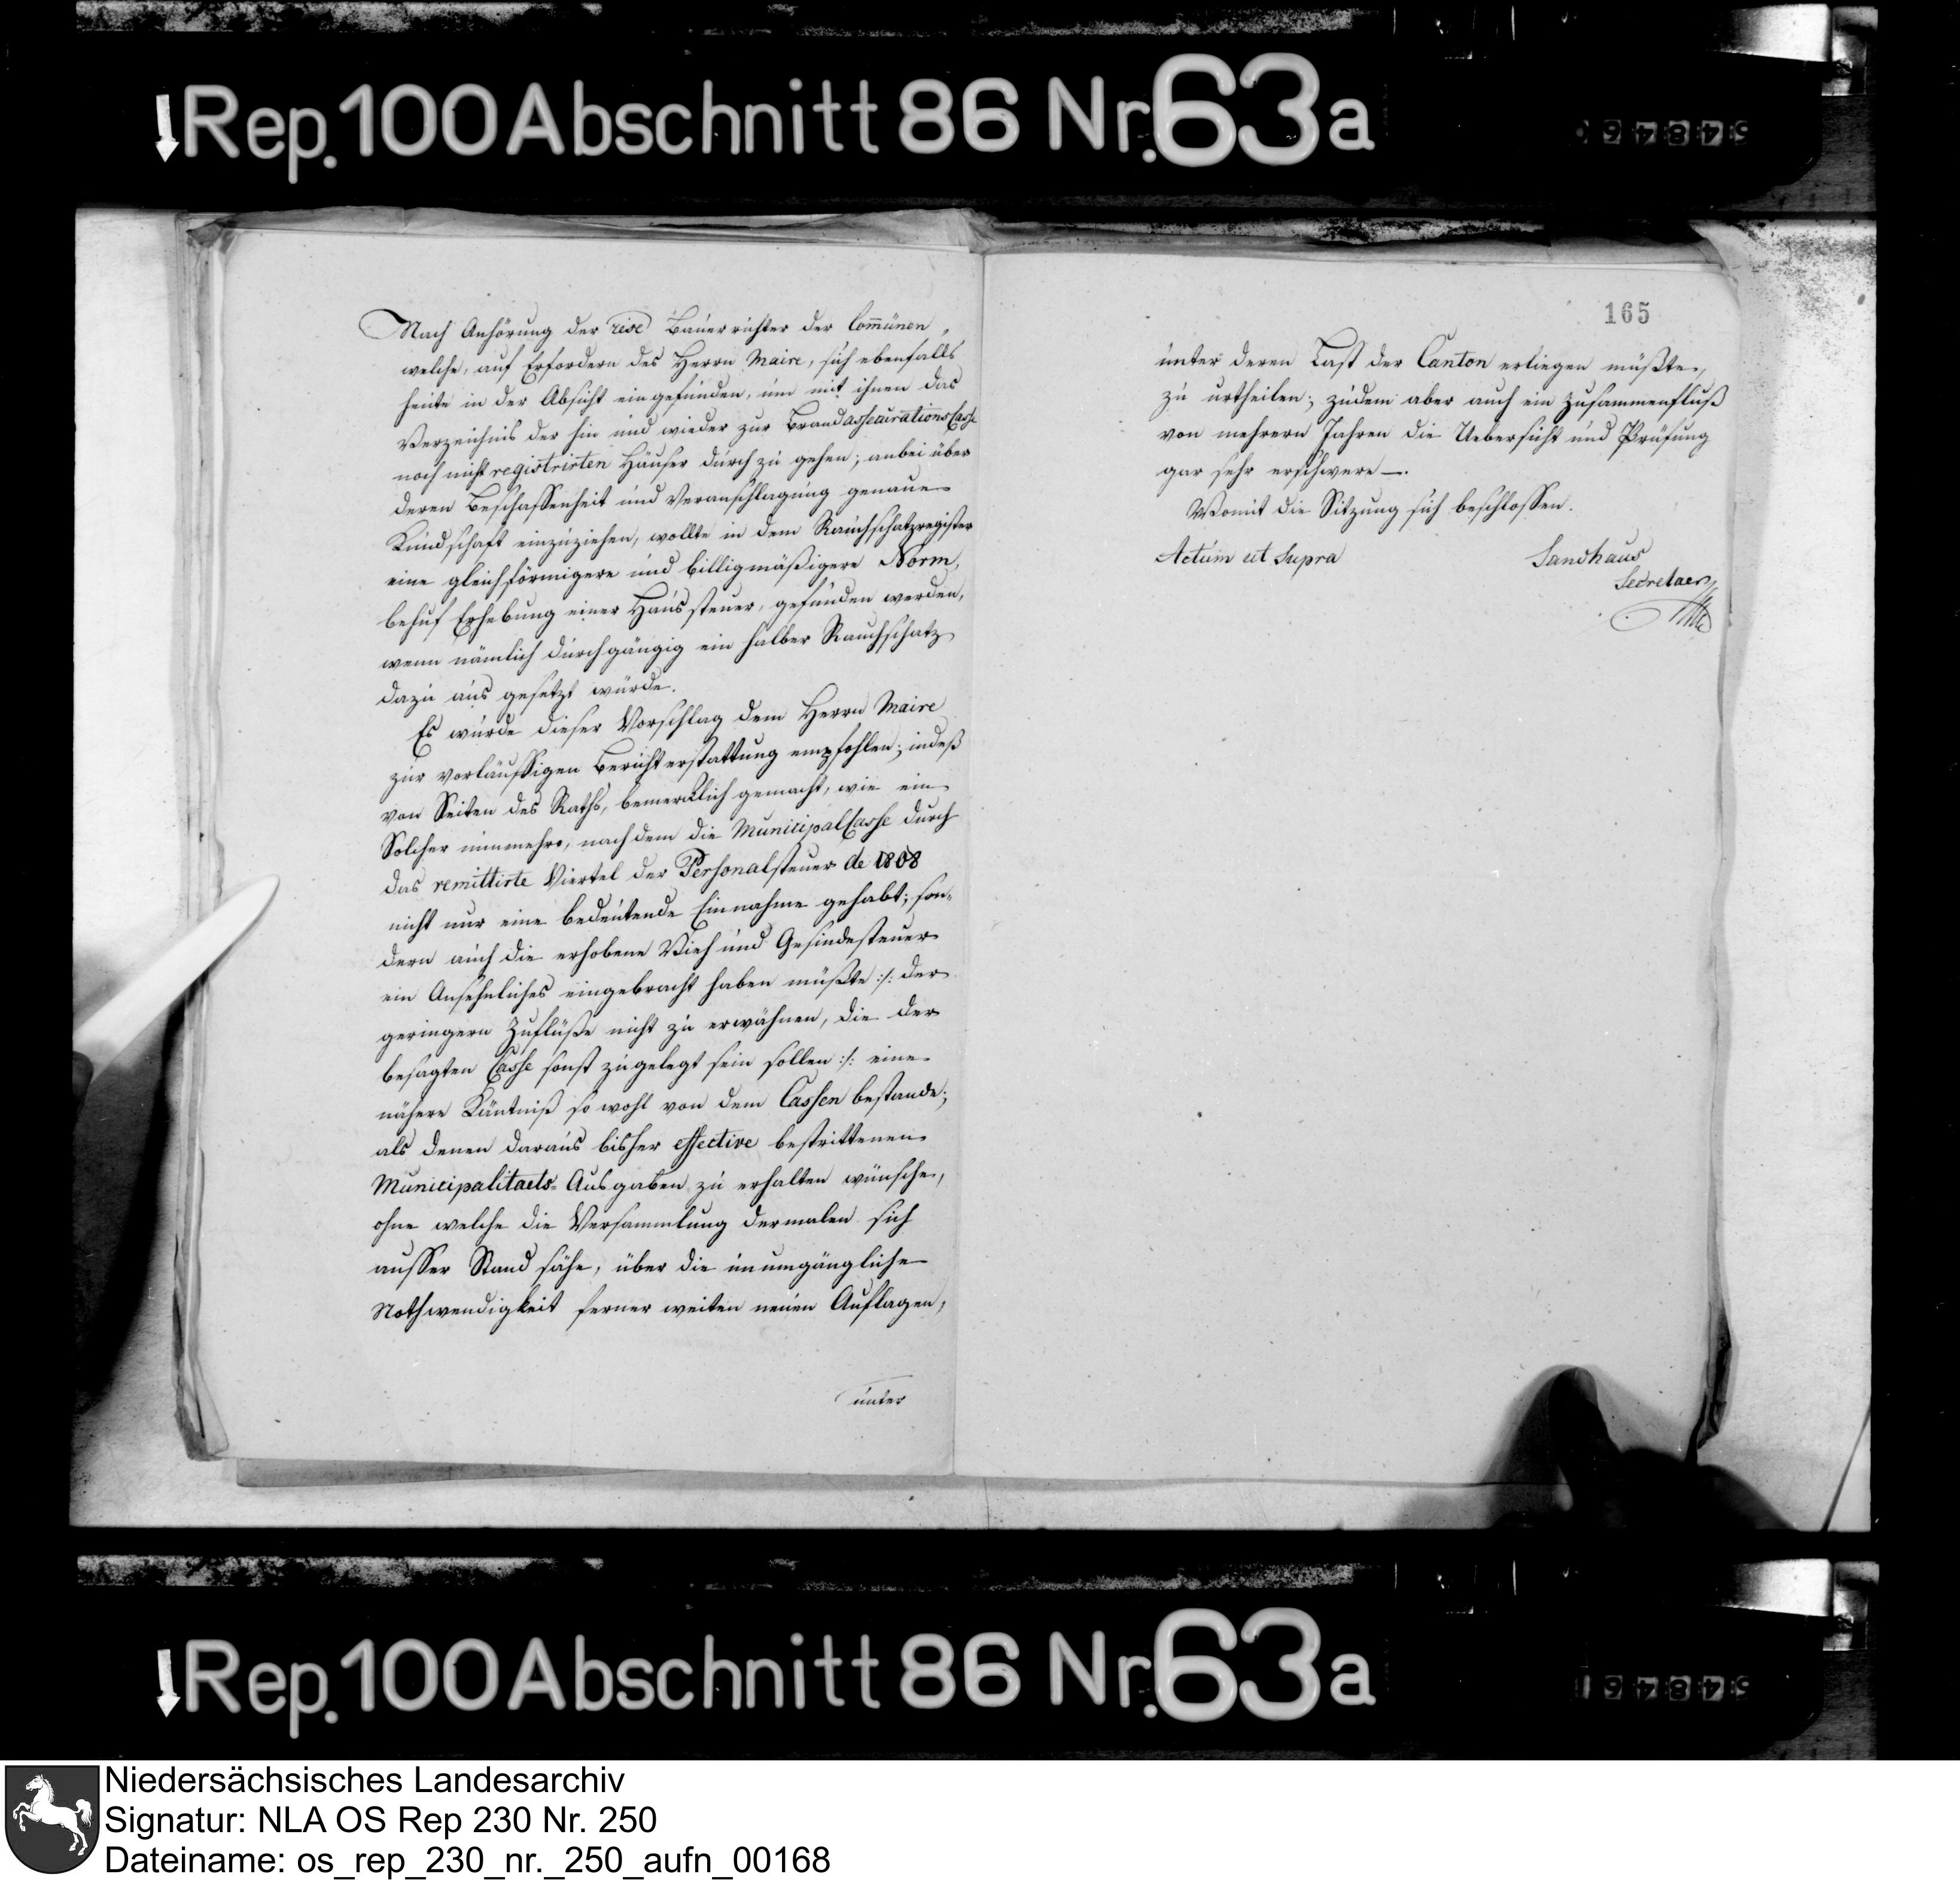 Rep. 100 Abschnitt 86 Nr. 63a
Nach Anhörung der resp Bauerrichter der Commünen,
welche, auf Erfordern des Herrn Maire, sich ebenfalls
heute in der Absicht eingefunden, um mit ihnen das
Verzeichnis der hin und wieder zur BrandassecurationsCasse
noch nicht registrirten Häuser durch zu gehen; anbei über
deren Beschaffenheit und Veranschlagung genaue
Kundschaft einzuziehen, wollte in dem Rauchschatzregister
eine gleichförmigere und billigmäßigere Norm,
behuf Erhebung einer Haussteuer, gefunden werden,
wenn nämlich durchgängig ein halber Rauchschatz
dazu aus gesetzt würde.
Es wurde dieser Vorschlag dem Herrn Maire
zur vorläuffigen Berichterstattung empfohlen; indeß
von Seiten des Raths, bemercklich gemacht, wie ein
Solcher nunmehro, nach dem die MunicipalCasse durch
das remittirte Viertel der Personalsteuer de 1808
nicht nur eine bedeutende Einnahme gehabt; son-
dern auch die erhobene Vieh und Gesindesteuer
ein Ansehnliches eingebracht haben müßte :/: der
geringern Zuflüße nicht zu erwähnen, die der
besagten Casse sonst zugelegt sein sollen :/: eine
nähere Käntniß so wohl von dem Cassen bestande;
als denen daraus bisher effective bestrittenen
Municipalitaets-Ausgaben zu erhalten wünsche,
ohne welche die Versammlung dermalen sich
ausser Stand sähe, über die unumgängliche
Nothwendigkeit ferner weiten neuen Auflagen,
unter
165
unter deren Last der Canton erliegen müßte,
zu urtheilen; zudem aber auch ein Zusammenfluß
von mehrern Jahren die Uebersicht und Prüfung
gar sehr erschwere —.
Womit die Sitzung sich beschlossen.
Actum ut Supra
Sandhaus
Secretaer
Rep. 100 Abschnitt 86 Nr. 63a
Niedersächsisches Landesarchiv
Signatur: NLA OS Rep 230 Nr. 250
Dateiname: os_rep_230_nr._250_aufn_00168